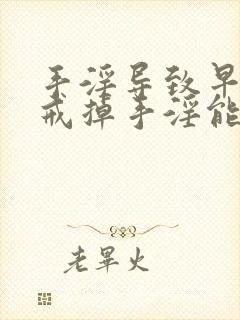 手淫导致早
戒掉手淫能
老畢火